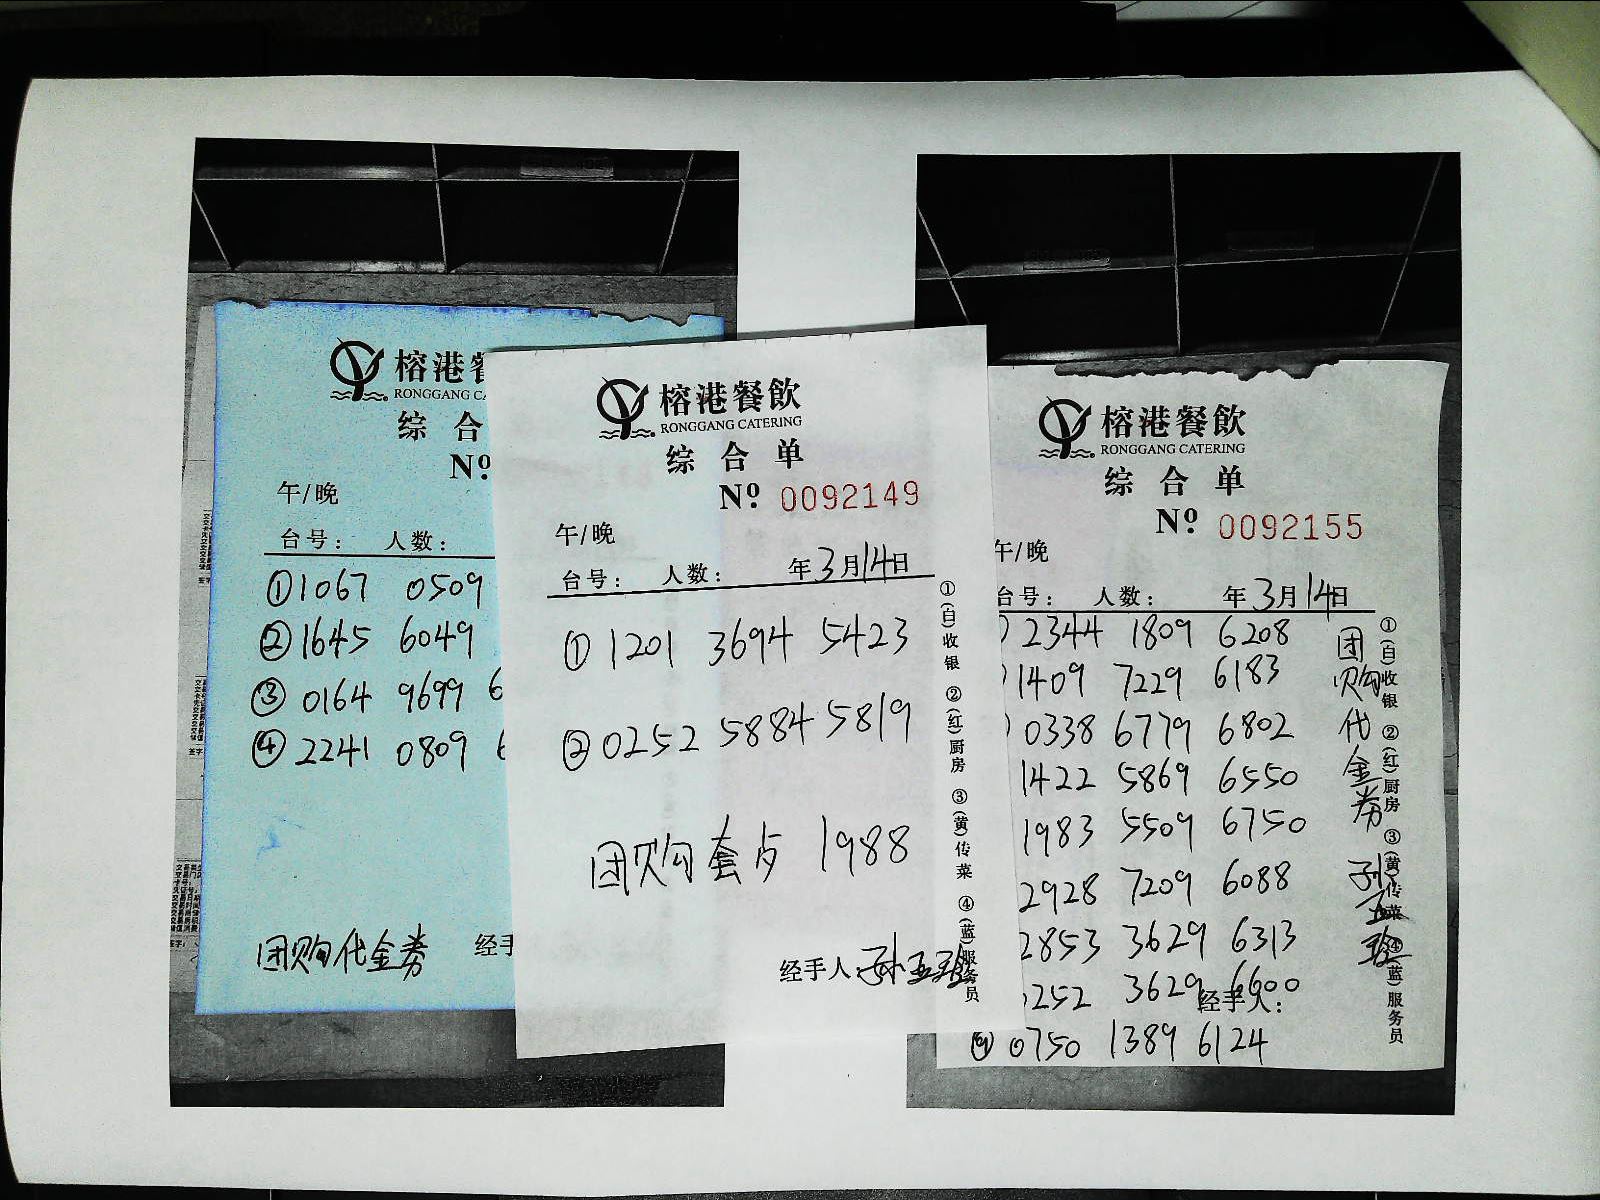 榕港餐
RONGGANG CA
综 合
Nº
午/晚
台号： 人数：
①1067 0509
②1645 6049
③0164 9699 6
④2241 0809 6
团购代金券 经手
榕港餐飲
RONGGANG CATERING
综 合 单
Nº 0092149
午/晚
台号： 人数： 年3月14日
①1201 3694 5423
②0252 5884 5819
团购套 1988
经手人
①(白)收银 ②(红)厨房 ③(黄)传菜 ④(蓝)服务员
榕港餐飲
RONGGANG CATERING
综 合 单
Nº 0092155
午/晚
台号： 人数： 年3月14日
2344 1809 6208
1409 7229 6183
0338 6779 6802
1422 5869 6550
1983 5509 6750
2928 7209 6088
2853 3629 6313
252 3629 6600
⑨0750 1389 6124
经手人：
团购代金券
①(白)收银 ②(红)厨房 ③(黄)传菜 ④(蓝)服务员